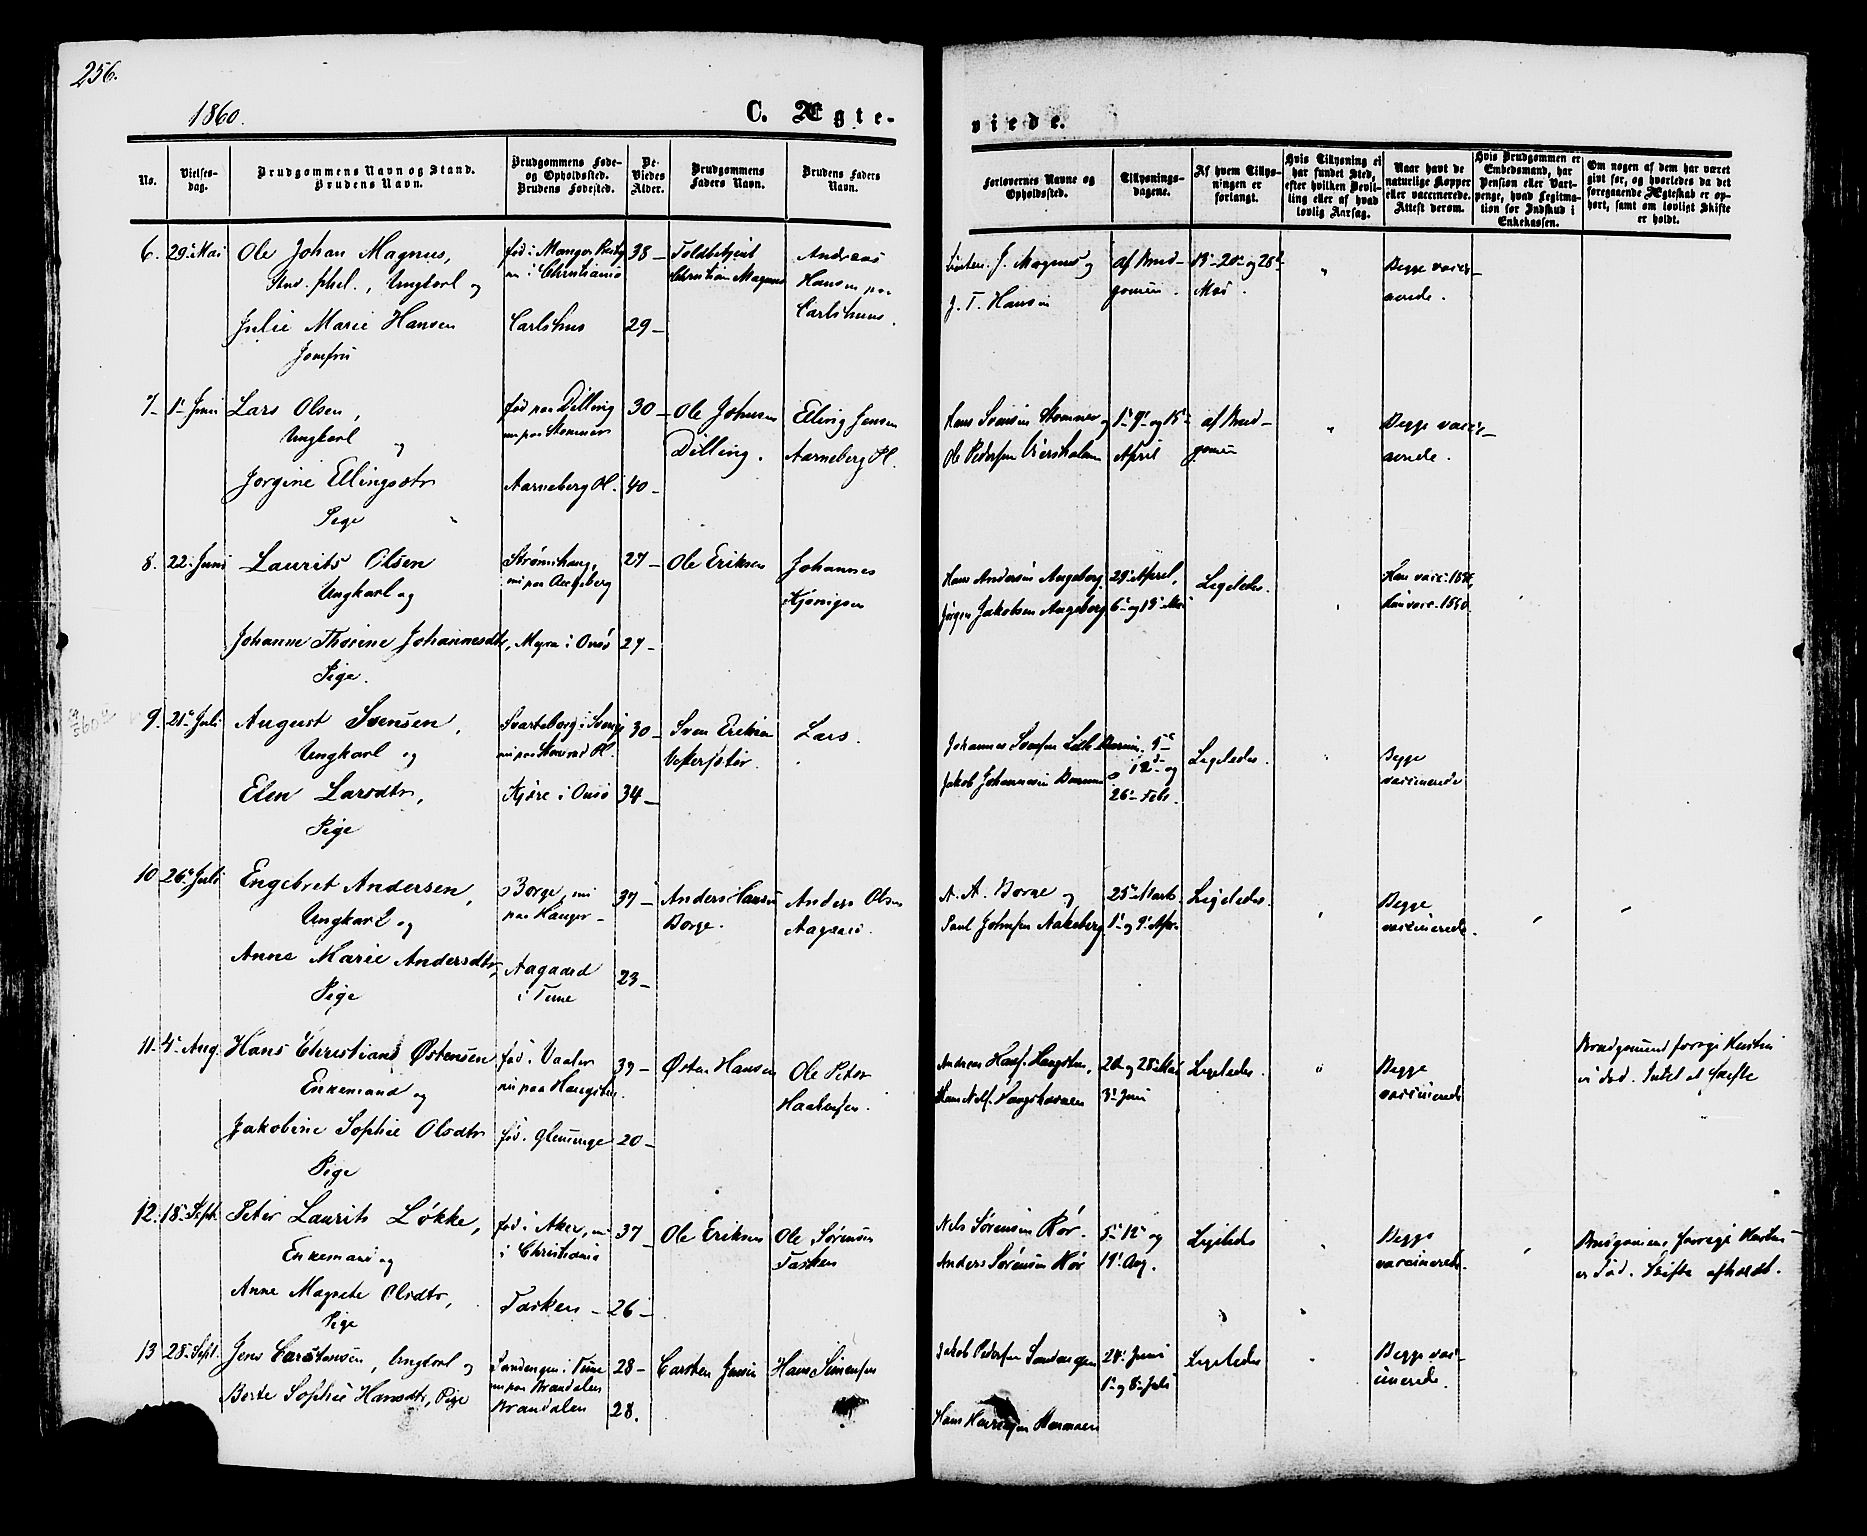 256.
1860.
C. Ægte-
viede.
No.
Vielses-
dag.
Brudgommens Navn og Stand.
Brudens Navn.
Brudgommens Føde-
og Opholdssted.
Brudens Fødested.
De
Viedes
Alder.
Brudgommens
Faders Navn.
Brudens Faders
Navn.
Forlovernes Navne og
Opholdssted.
Tillysnings-
dagene.
Af hvem Tillys-
ningen er
forlangt.
Hvis Tillysning ei
har fundet Sted,
efter hvilken Bevil-
ling eller af hvad
lovlig Aarsag.
Naar havt de
naturlige Kopper
eller vaccinerede.
Attest derom.
Hvis Brudgommen er
Embedsmand, har
Pension eller Vart-
penge, hvad Legitima-
tion for Indskud i
Enkekassen.
Om nogen af dem har været
givt før, og hvorledes da det
foregaaende Ægteskab er op-
hørt, samt om lovligt Skifte
er holdt.
6. 29 Mai Ole Johan Magnus,
Stud. phil., Ungkarl og
Julie Marie Hansen
Jomfru
nu i Christiania
Carlshus
38
29
Toldbetjent
Christian Magnus
Andreas
Hansen paa
Carlshuus.
J. Magnus og
J. T. Hansen
af Brud-
gomen.
18 20 og 28
Mai.
Begge vacci-
nerede.
7 1 Juni Lars Olsen,
Ungkarl
og
Jørgine Ellingsdtr
Pige
fød paa Dilling
nu paa Stomner
Aarneberg Pl.
30
40
Ole Johnsen
Dilling.
Elling Jensen
Aarneberg Pl.
Hans Svensen Stomner og
Ole Pedersen
1 9 og 15
April
af Brud-
gomen
Begge vacci-
nerede.
8. 22. Juni Laurits Olsen
Ungkarl og
Johanne Thorine Johannesdtr,
Pige.
Strømshaug,
nu paa Augeberg
Myra i Onsø
27
27
Ole Eriksen
Johannes
Hans Andersen Augeberg.
Jørgen Jakobsen Augeberg
29 April,
6 og 13 Mai
Ligeledes.
9. 21 Juli August Svensen,
Ungkarl og
Elen Larsdtr,
Pige
Svarteborg i Sverige
Kjære i Onsø
30
34
Sven Eriksen
Lars.
Johannes Svensen
Jakob Johannesen
5
12 og
26 Febr.
Ligeledes.
Begge
vaccinerede
10 26 Juli Engebret Andersen,
Ungkarl og
Anne Marie Andersdtr,
Pige
Borge, nu
paa Hauger
Aagaard
i Tune
37
23
Anders Hansen
Borge.
Anders Olsen
Aagaard.
A. A. Borge og
Paul Johnsen Aakeberg
25 Marts
1 og 9 Apr.
Ligeledes.
Begge
vaccinerede.
11. 4 Aug. Hans Christian Østensen
Enkemand og
Jakobine Sophie Olsdtr
Pige
fød i Vaaler
nu paa Haugsten.
fød i Glemminge
39
20
Østen Hansen
Ole Peter
Andreas Hansen Haugsten,
20 og 28 Mai
3 Juni
Ligeledes.
Begge
vaccinerede
Brudgomens forrige Hustru
er død. Intet at skifte
12. 18 Sept. Peter Laurits Løkke,
Enkemand og
Anne Magrete Olsdtr,
Pige
fød i Aker, nu
i Christiania
Tasken
37
26
Ole Eriksen
Ole Sørensen
Tasken
Nils Sørensen Rør.
Anders Sørensen Rør
5 12 og
19 Aug.
Ligeledes
Begge
vaccinerede.
Brudgomens forrige Hustru
er død. Skifte afholdt.
13 28 Sept. Jens Carstensen, Ungkarl og
Berte Sophie Hansdtr, Pige
Sandengen i Tune
nu paa Brandalen
Brandalen
28
28.
Carsten Jensen
Hans Simensen
Jakob Pedersen Sandengen
24 Juni
1 og 8 Juli
Ligeledes
Begge vac-
cinerede.